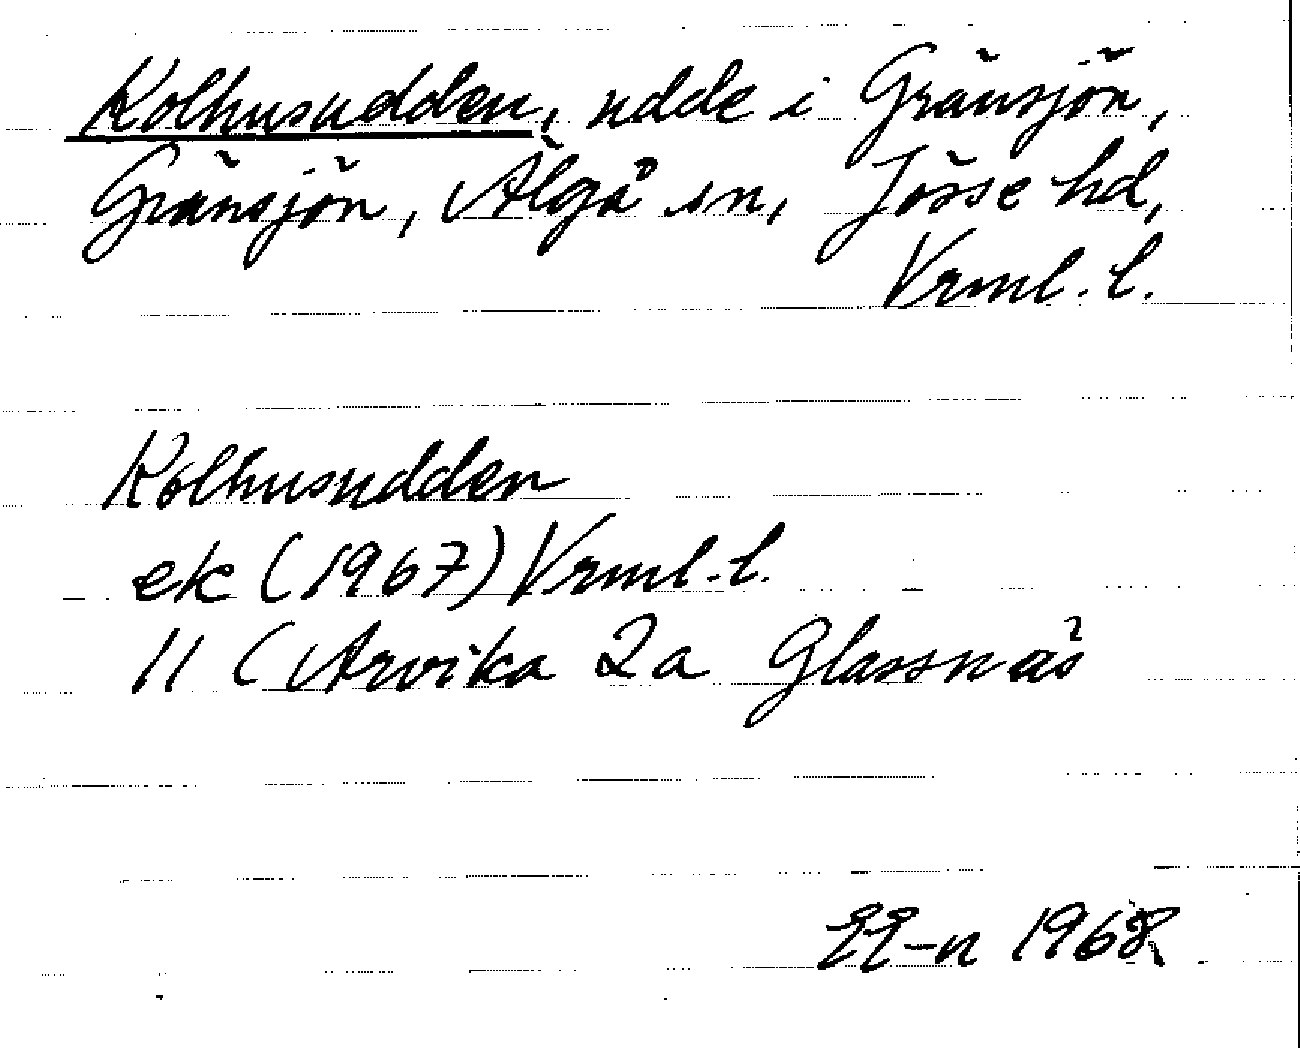 Kolhusudden, udde i Gränsjön,
Gränsjön, Älgå sn, Jösse hd,
Vrml. l.
Kolhusudden
ek (1967) Vrml. l.
11 ( Arvika 2a Glassnäs
1968